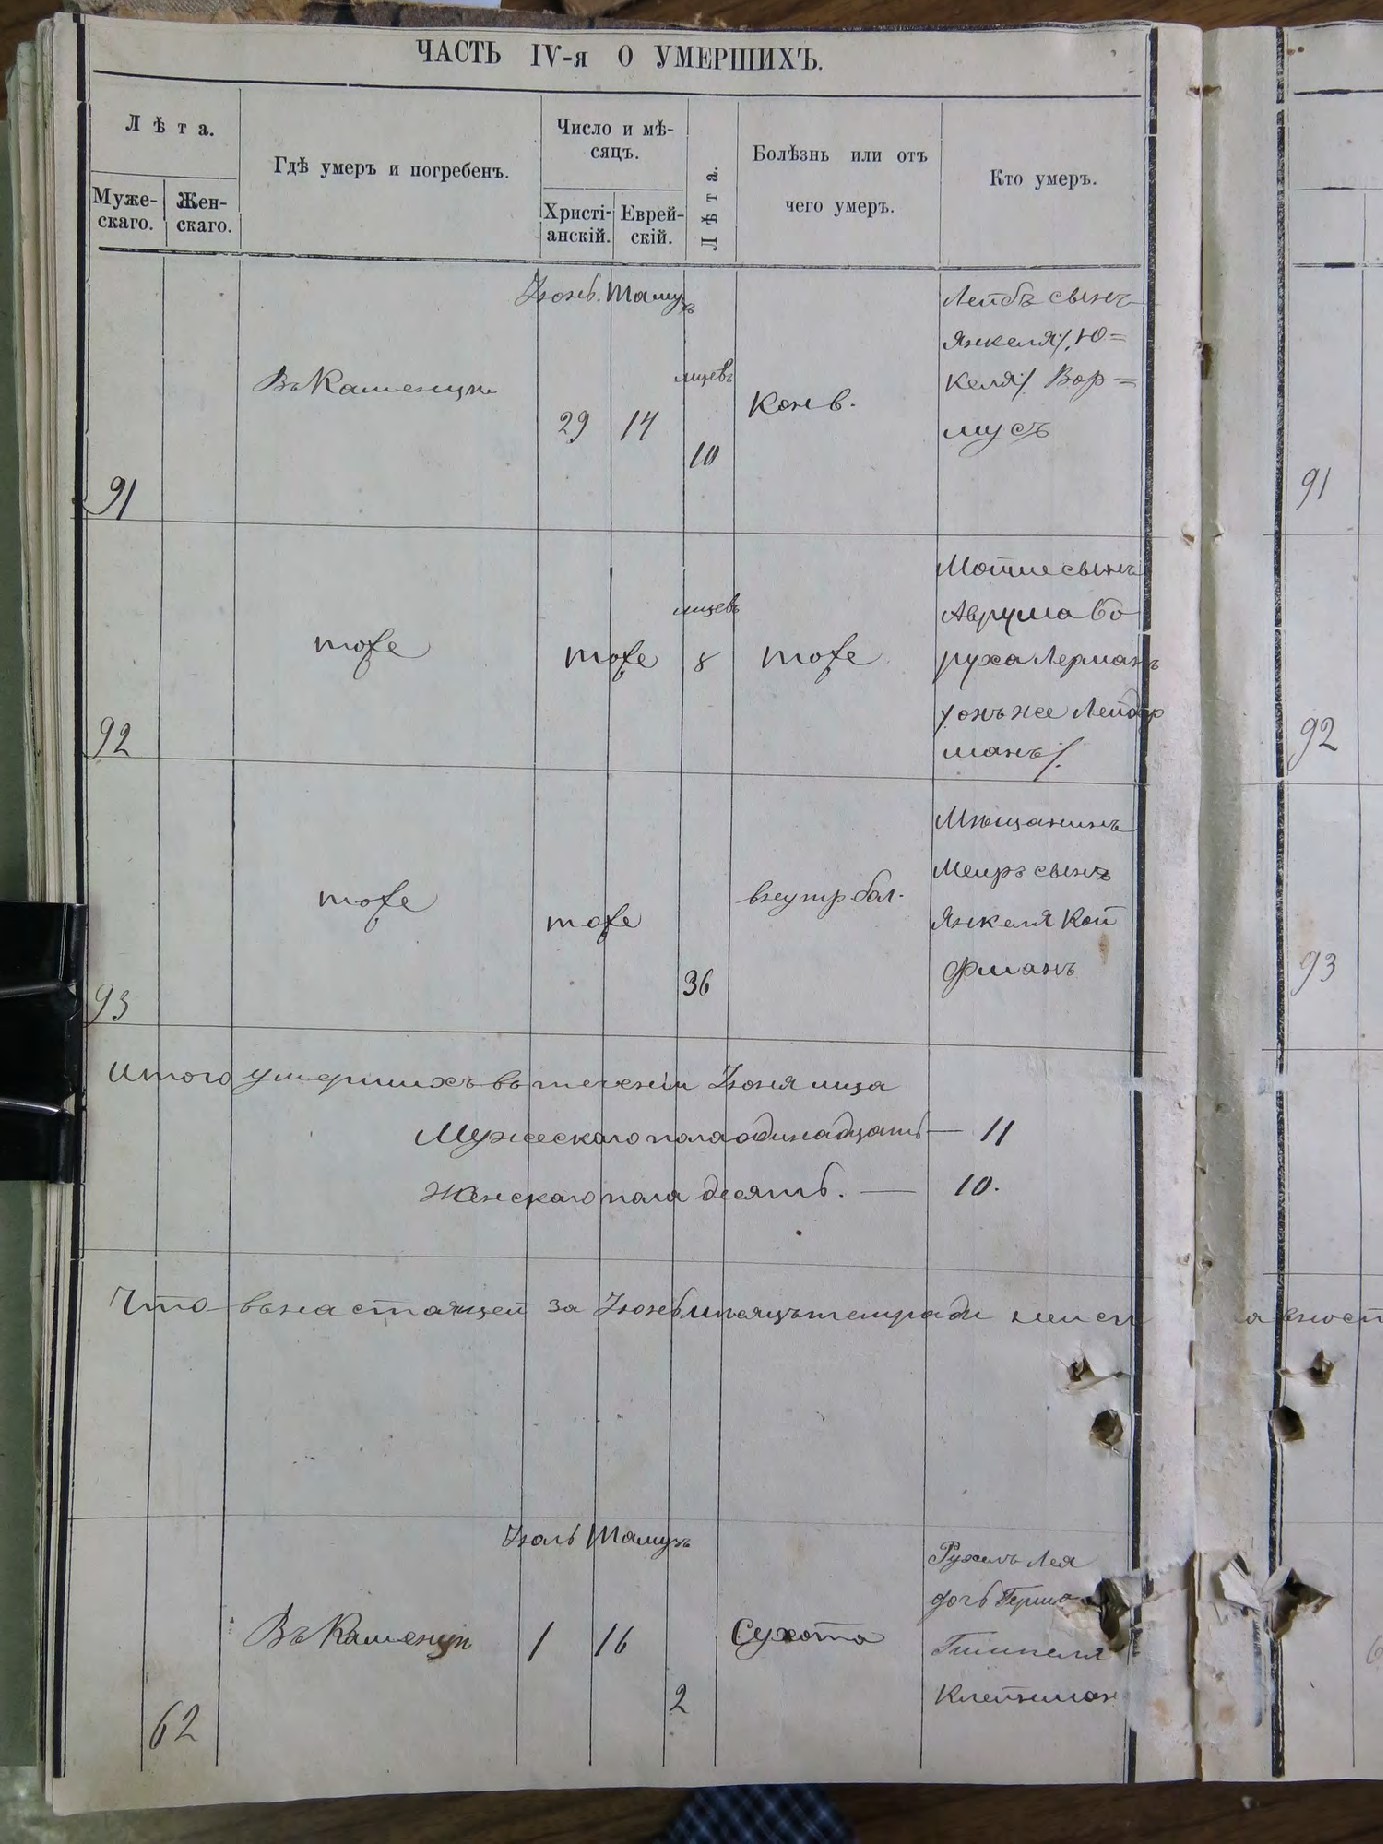 ЧАСТЬ IV-я О УМЕРШИХЪ.
Лѣта.
Муже-
скаго.
Жен-
скаго.
Гдѣ умеръ и погребенъ.
Число и мѣ-
сяцъ.
Христі-
анскій.
Еврей-
скій.
Лѣта.
Болѣзнь или отъ
чего умеръ.
Кто умеръ.
91
Въ Каменцѣ
Іюнь. Тамузъ
29 14
мцевъ
10
Конв.
Лейбъ сынъ
Янкеля /:Ю=
келя/: Вор=
мусъ
91
92
тоже
тоже
мцевъ
8
тоже
Мотие сынъ
Аврума Бо
руха Лерманъ
/:онъ же Лейдер
манъ/:
92
93
тоже
тоже
36
внутр бол.
Мѣщанинъ
Меиръ сынъ
Янкеля Кой
фманъ
93
Итого умершихъ въ теченіи Іюня мца
Мужескаго пола одинадцать — 11
Женскаго пола десять. — 10.
Что въ настоящей за Іюнь мѣсяцъ тетради
62
Въ Каменцѣ
Іюль Тамузъ
1 16
2
Сухота
Рухель Лея
дочь Герша
Гимпеля
Клейнман